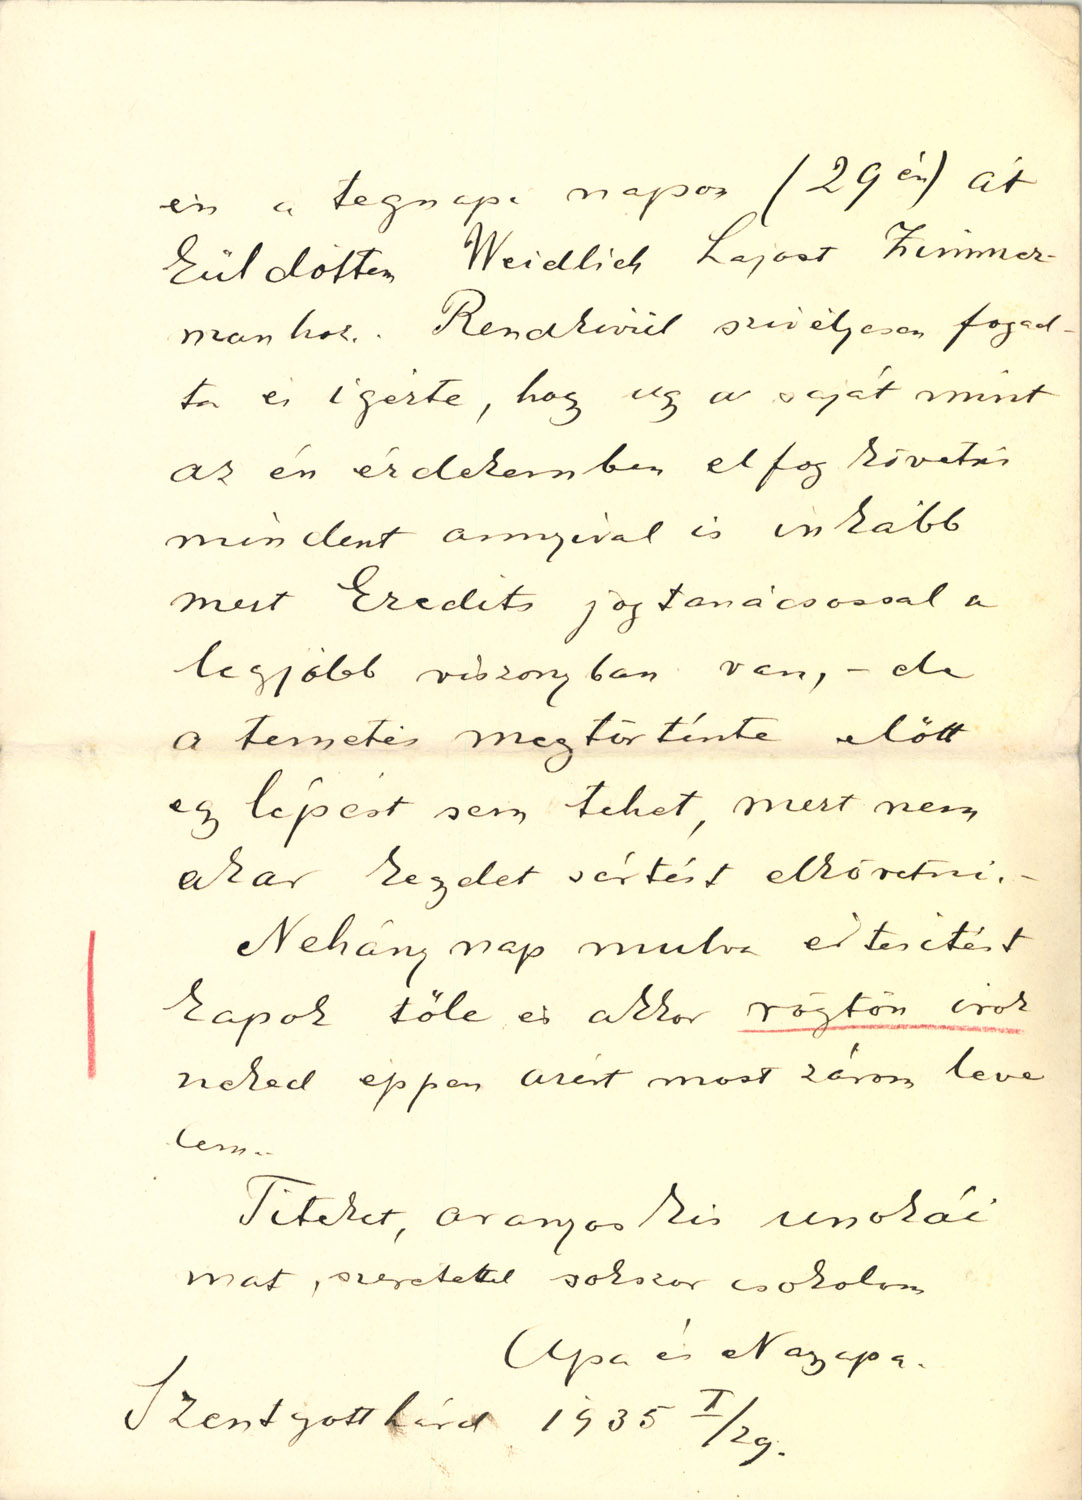 én a tegnapi napon (29 én) át
küldöttem Weidlich Lajost Zimmer-
manhoz. Rendkivül szivélyesen fogad-
ta és igérte, hog ug a saját mint
az én érdekemben elfog követni
mindent annyival is inkább
mert Eredits jogtanácsossal a
legjobb viszonyban van, – de
a temetés megtörténte előtt
eg lépést sem tehet, mert nem
akar kegelet sértést elkövetni. –
Nehány nap mulva értesitést
kapok tőle és akkor rögtön irok
neked éppen azért most zárom leve
lem.
Titeket, aranyos kis unokái
mat, szeretettel sokszor csokolom
Apa és Nagapa.
Szentgotthárd 1935 I/29.